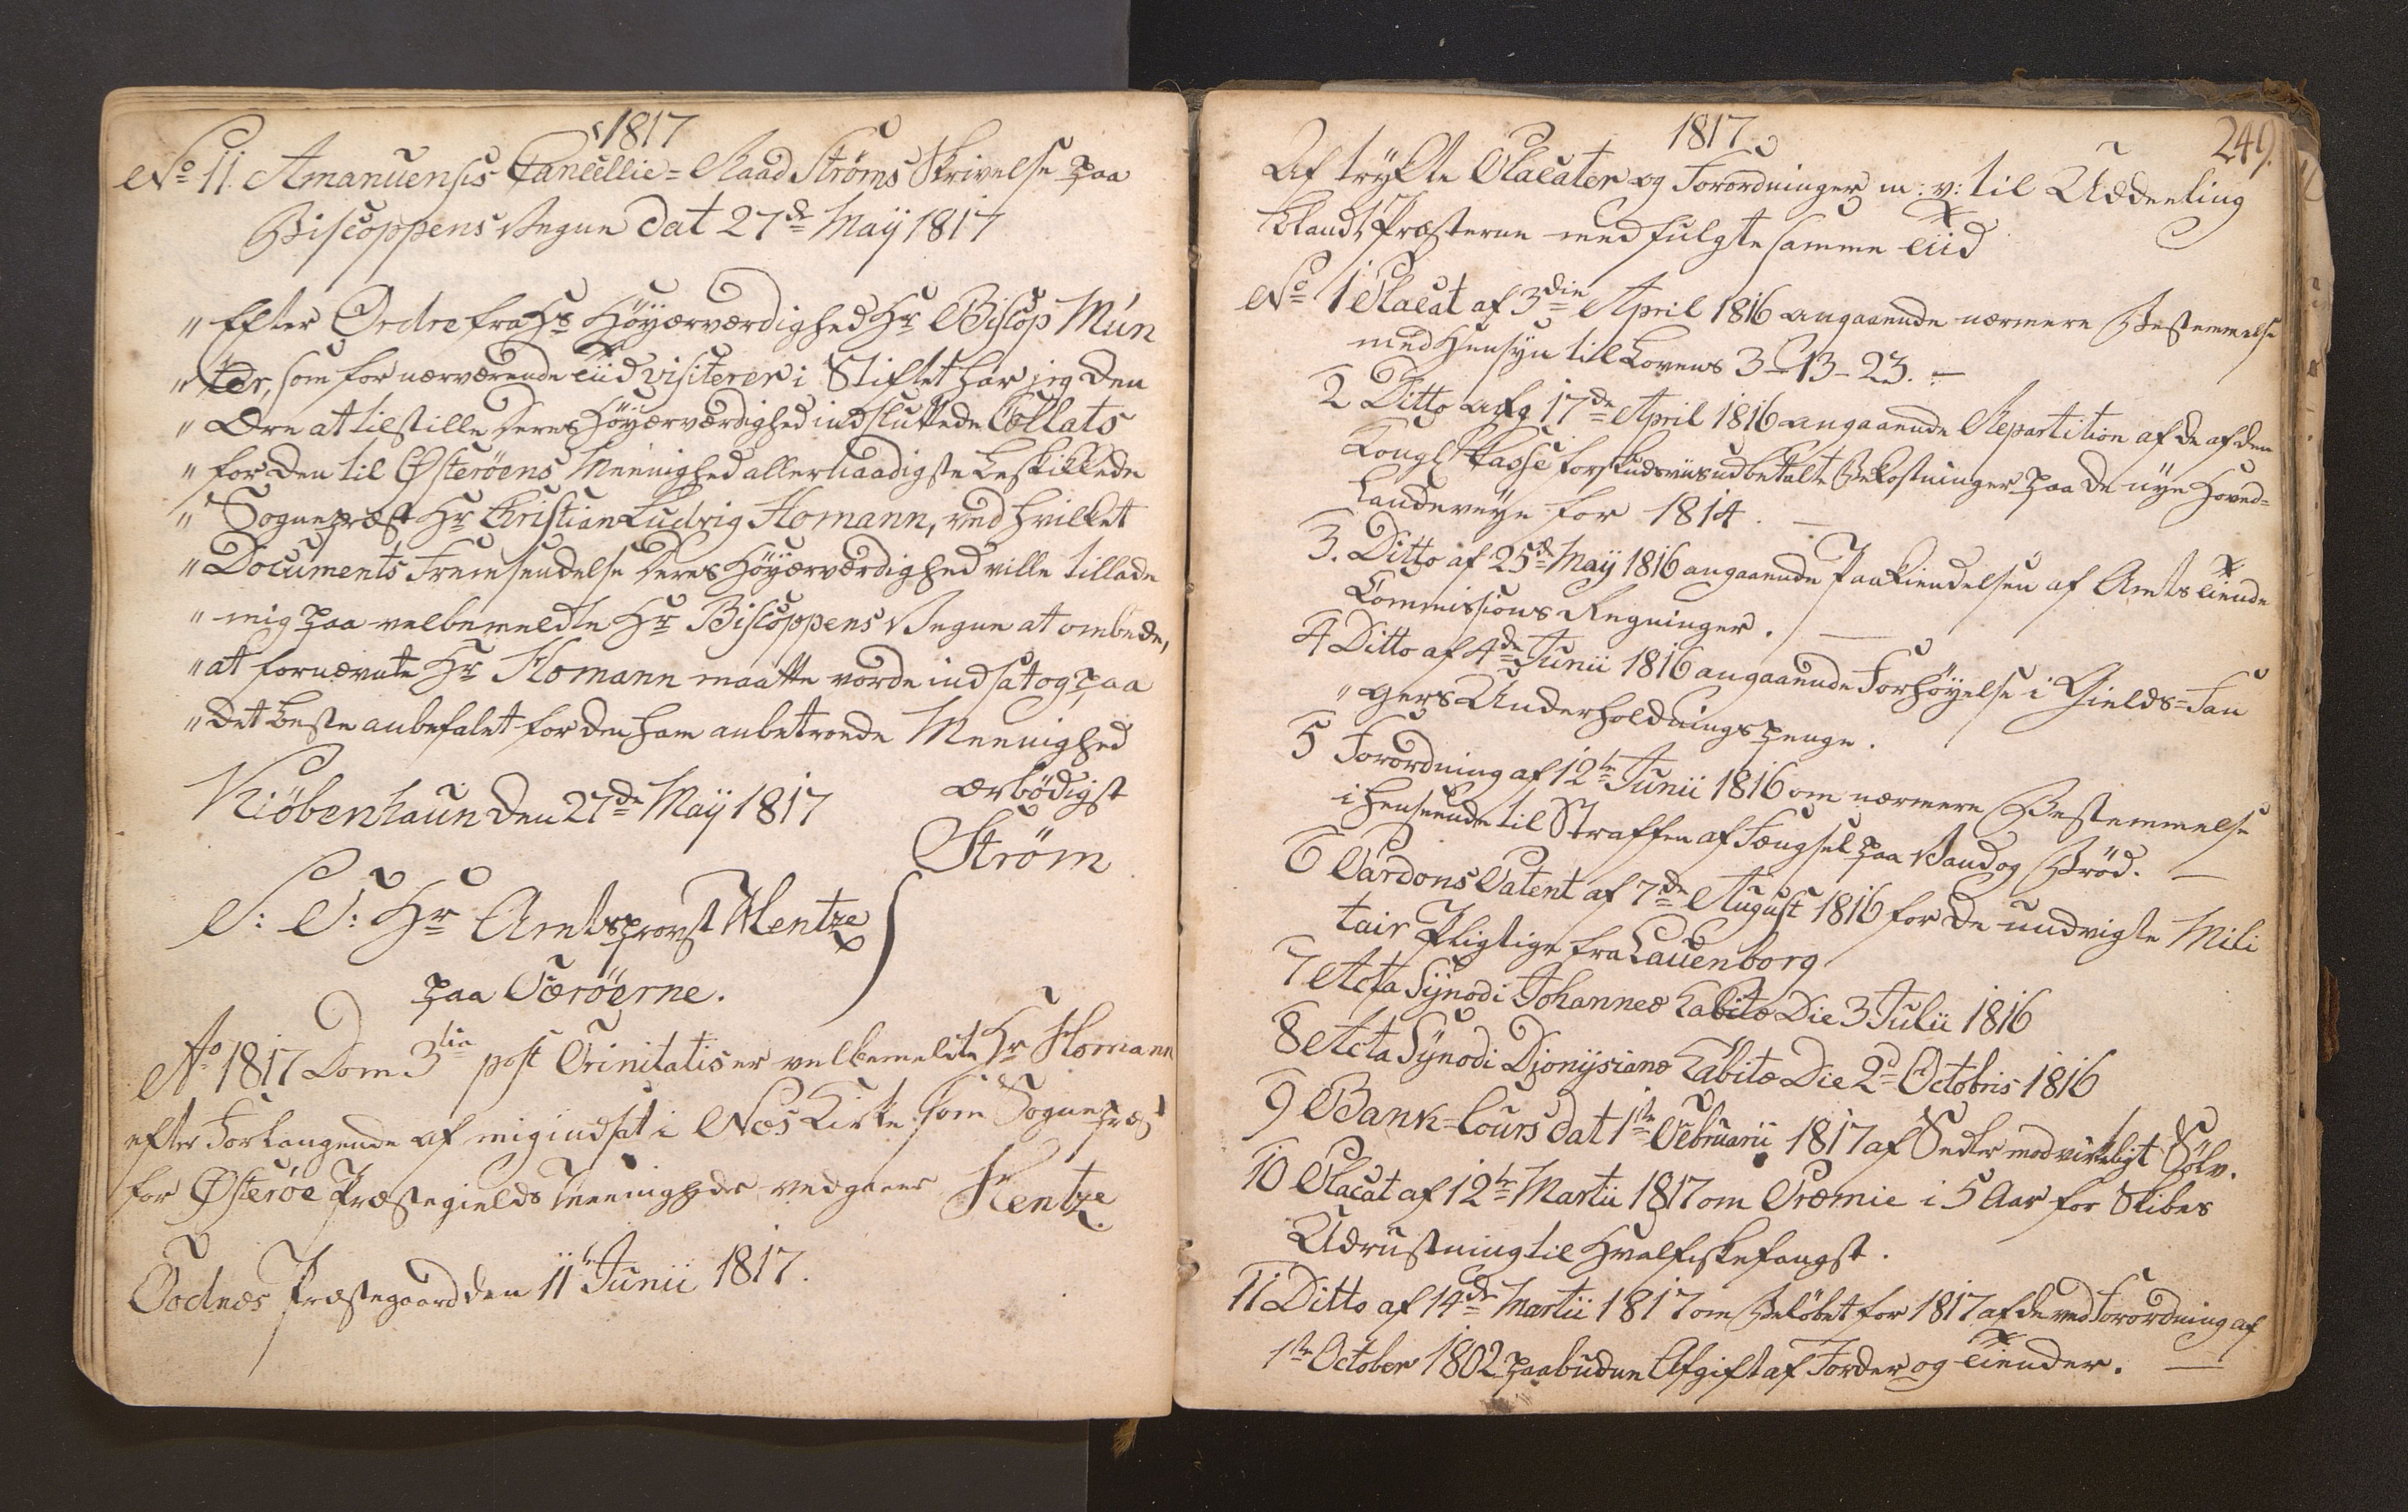 1817
No 11. Amanuensis Cancellie=Raad Ströms Skrivelse paa
Biscoppens Vegne dat 27de Maÿ 1817
" Efter Ordre fra Hs Höÿærværdighed Hr Biscop Mün
" ter, som for nærværende Tiid visiterer i Stiftet har jeg den
" Ære at tilstille Deres Höÿærværdighed indsluttede Collats
" for den til Østeröens Meenighed allernaadigste beskikkede
" Sognepræst Hr Christian Ludvig Homann, ved hvilket
" Documents Fremsendelse Deres Höÿærværdighed ville tillade
" mig paa velbemeldte Hr Biscoppens Vegne at ombede,
" at fornævnte Hr Homann maatte vorde indsat og paa
" det beste anbefalet for den ham anbetroede Meenighed
Kiöbenhaun den 27de Maÿ 1817 ærbödigst
Ström
S: T: Hr Amtsprovst Hentze
paa Færöerne.
Ao 1817 Dom 3tia post Trinitatis er velbemeldte Hr Homann
efter Forlangende af mig indsat i Næs Kirke som Sognepræst
for Østeröe Præstegields Meenighede vedgaaer Hentze
Todnæs Præstegaard den 11t Junii 1817.
249.
1817
Af trÿkte Placater og Forordninger m: v: til Uddeeling
blandt Præsterne medfulgte samme Tiid
No 1 Placat af 3die April 1816 angaaende nærmere Bestemmelse
med Hensyn til Lovens 3-13-23. –
2 Ditto af 17de April 1816 angaaende Repartition af de af den
Kongl Kasse forskudsviis udbetalte Bekostninger paa de nÿe Hoved=
landeveÿe for 1814. –
3. Ditto af 25de Maÿ 1816 angaaende Paakiendelsen af Amts Tiende
Commissions Regninger. –
4 Ditto af 4de Junii 1816 angaaende Forhöÿelse i Gields=Fan
" gers Underholdnings penge.
5 Forordning af 12te Junii 1816 om nærmere Bestemmelse
i henseende til Straffen af Fængsel paa Vand og Bröd. –
6 Pardons Patent af 7de August 1816 for de undvigte Mili
tair Pligtige fra Lauenborg
7 Acta Sÿnodi Johanneæ habitæ Die 3 Julii 1816
8 Acta Sÿnodi Djonÿsianæ habitæ Die 2d Octobris 1816
9 Bank=Cours dat 1ste Februarii 1817 af Sedler mod virkeligt Sölv.
10 Placat af 12te Martii 1817 om Præmie i 5 Aar for Skibes
Udrustning til Hvalfiskefangst.
11 Ditto af 14de Martii 1817 om Belöbet for 1817 af de ved Forordning af
1ste October 1802 paabudne Afgift af Jorder og Tiender. –